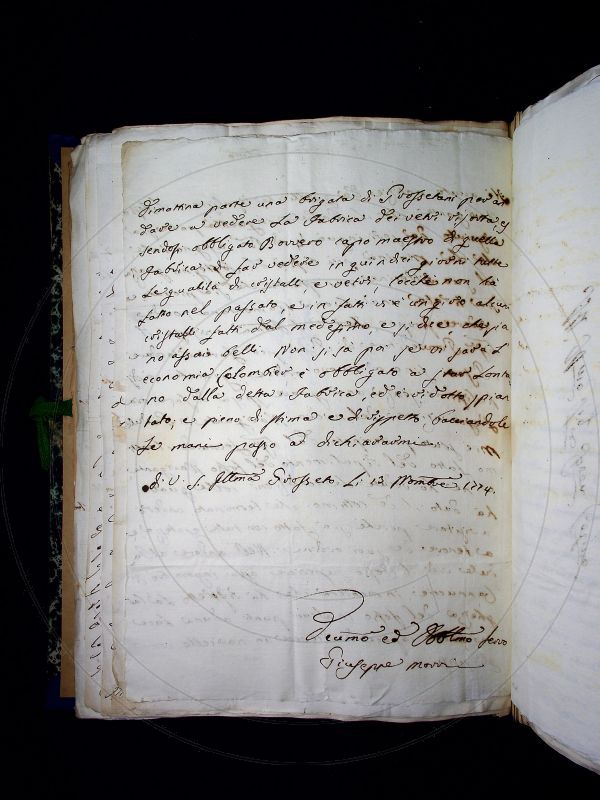 dimattina parte una brigata di Grossetani per an
dare a vedere la Fabrica dei vetri
sendosi obbligato Bovvero capo maestro di quella
Fabrica di far vedere in quindici giorni tutte
le qualità di cristalli e vetri, locchè non hà
fatto nel passato, e in fatti vi è in giro alcuni
cristalli fatti dal medesimo e si dice che sia
no assai belli. Non si sà poi se vi sarà l
economia Colombier è obbligato a star lonta
no dalla detta Fabrica, ed è ridotto spian
tato; e pieno di stima e di rispetto bacciandole
le mani passo a dichiararmi
di V. S. Illma Grosseto li 13 Novembre 1774.
Devmo ed Obblmo servo
Giuseppe